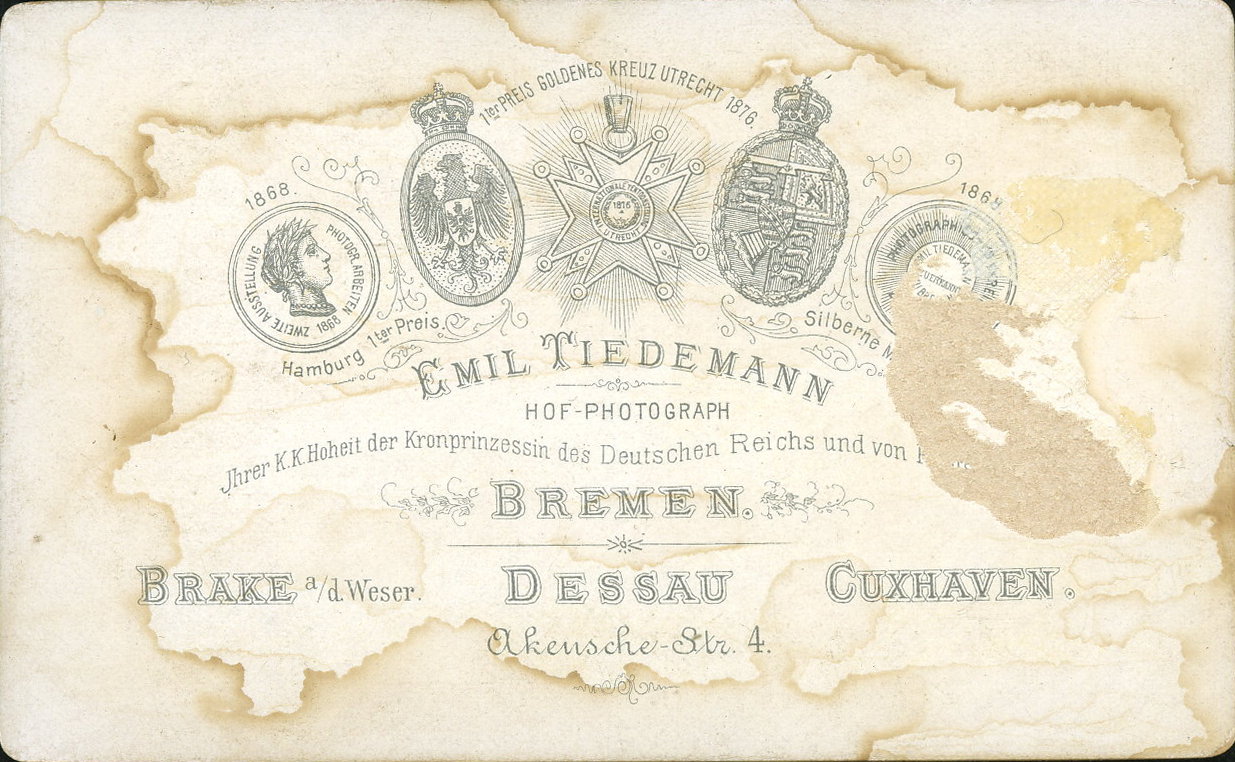 1ter PREIS GOLDENES KREUZ UTRECHT 1876.
1868.
ZWEITE AUSSTELLUNG PHOTOGR. ARBEITEN 1868
Hamburg 1ter Preis.
1876
UTRECHT
1868
PHOTOGRAPHIE
TIEDEMAN
Silberne
EMIL TIEDEMANN
HOF-PHOTOGRAPH
Jhrer K.K. Hoheit der Kronprinzessin des Deutschen Reichs und von
BREMEN.
BRAKE a/d. Weser.
DESSAU
CUXHAVEN.
Akensche-Str. 4.